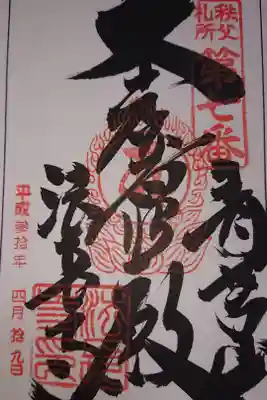 秩父
札所
第七番
青苔山
大
殿
法長寺
平成参拾年 四月拾九日